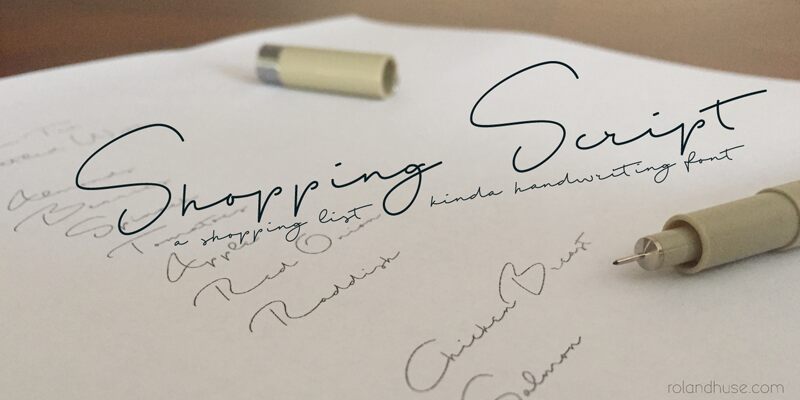 Shopping Script
a shopping list kinda handwriting font
Bananas
Spinach
Tomatoes
Apple
Red Onion
Raddish
Chicken Breast
Salmon
rolandhuse.com